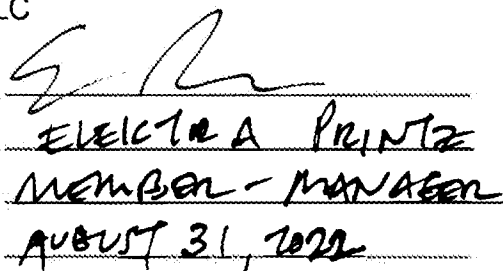 LC
ELEKTRA PRINTZ
MEMBER - MANAGER
AUGUST 31, 2022